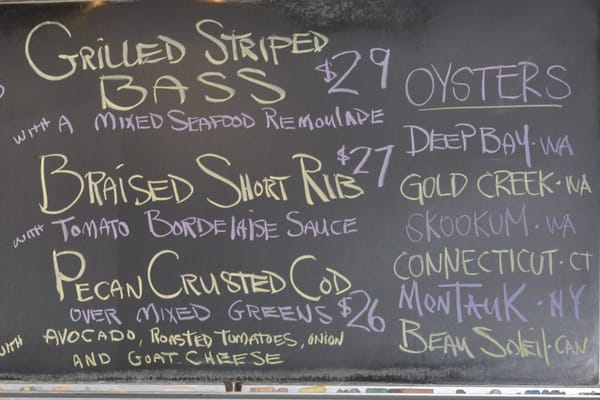 GRILLED STRIPED
BASS
$29
WITH A MIXED SEAFOOD REMOULADE
BRAISED SHORT RIB
$27
WITH TOMATO BORDELAISE SAUCE
PECAN CRUSTED COD
OVER MIXED GREENS $26
WITH AVOCADO, ROASTED TOMATOES, ONION
AND GOAT CHEESE
OYSTERS
DEEP BAY · WA
GOLD CREEK · WA
SKOOKUM · WA
CONNECTICUT · CT
MONTAUK · NY
BEAU SOLEIL · CAN